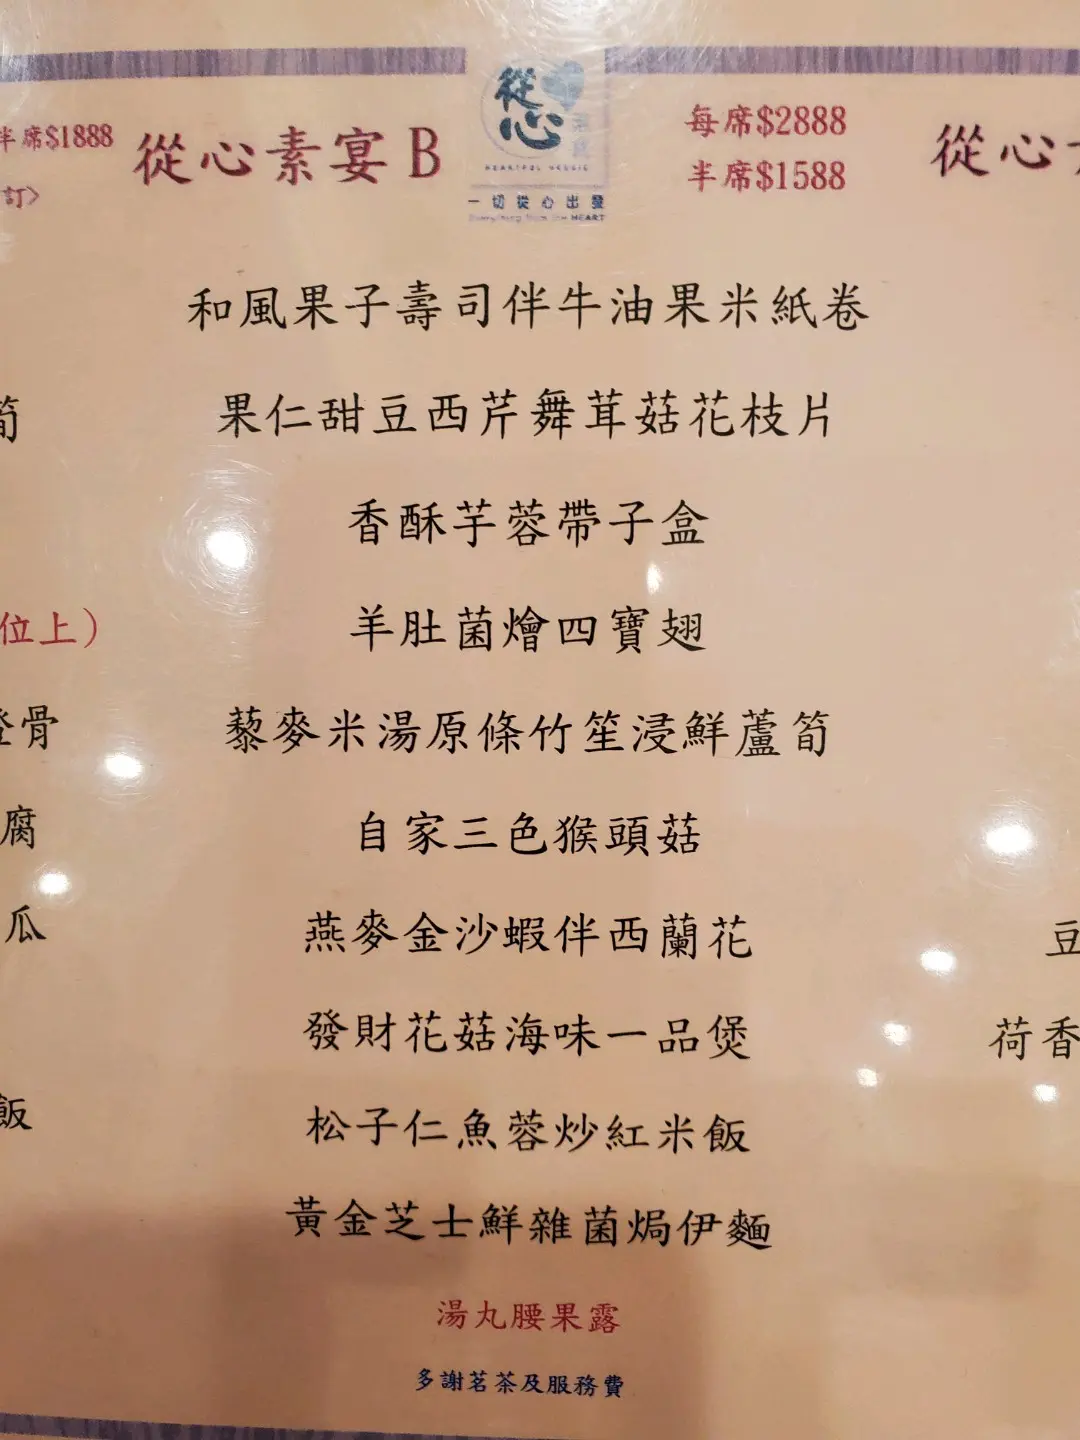 半席$1888
訂>
從心素宴 B
從心
HEARTFUL VEGGIE
一切從心出發
Everything from the HEART
每席$2888
半席$1588
從心
和風果子壽司伴牛油果米紙卷
筍
果仁甜豆西芹舞茸菇花枝片
香酥芋蓉帶子盒
位上）
羊肚菌燴四寶翅
骨
藜麥米湯原條竹笙浸鮮蘆筍
腐
自家三色猴頭菇
瓜
燕麥金沙蝦伴西蘭花
豆
發財花菇海味一品煲
荷香
飯
松子仁魚蓉炒紅米飯
黃金芝士鮮雜菌焗伊麵
湯丸腰果露
多謝茗茶及服務費